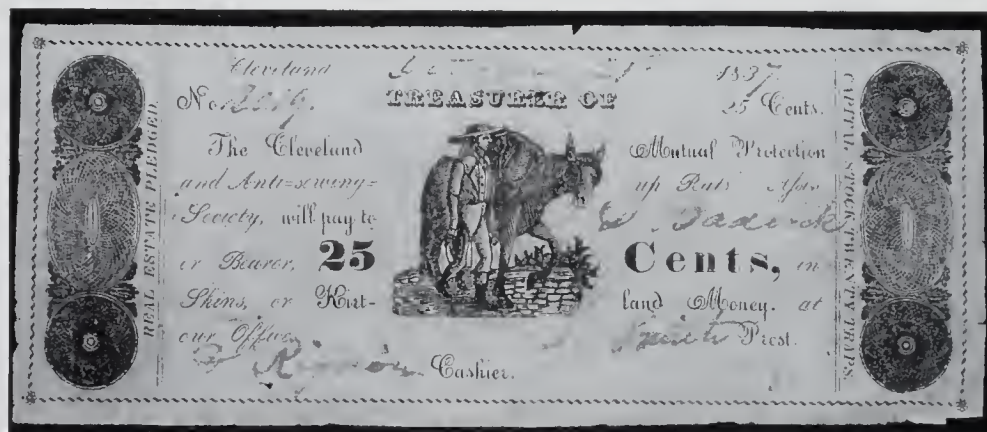 Cleveland 1837.
TREASURER OF
No. 25 Cents.
The Cleveland Mutual Protection
and Anti-sewing= up Rats
Society, will pay to
or Bearer, 25 Cents, in
Skins, or Kirt- land Money. at
our Office, Smith Prest.
Cashier.
REAL ESTATE PLEDGED.
CAPITAL STOCK TWENTY TRAPS.